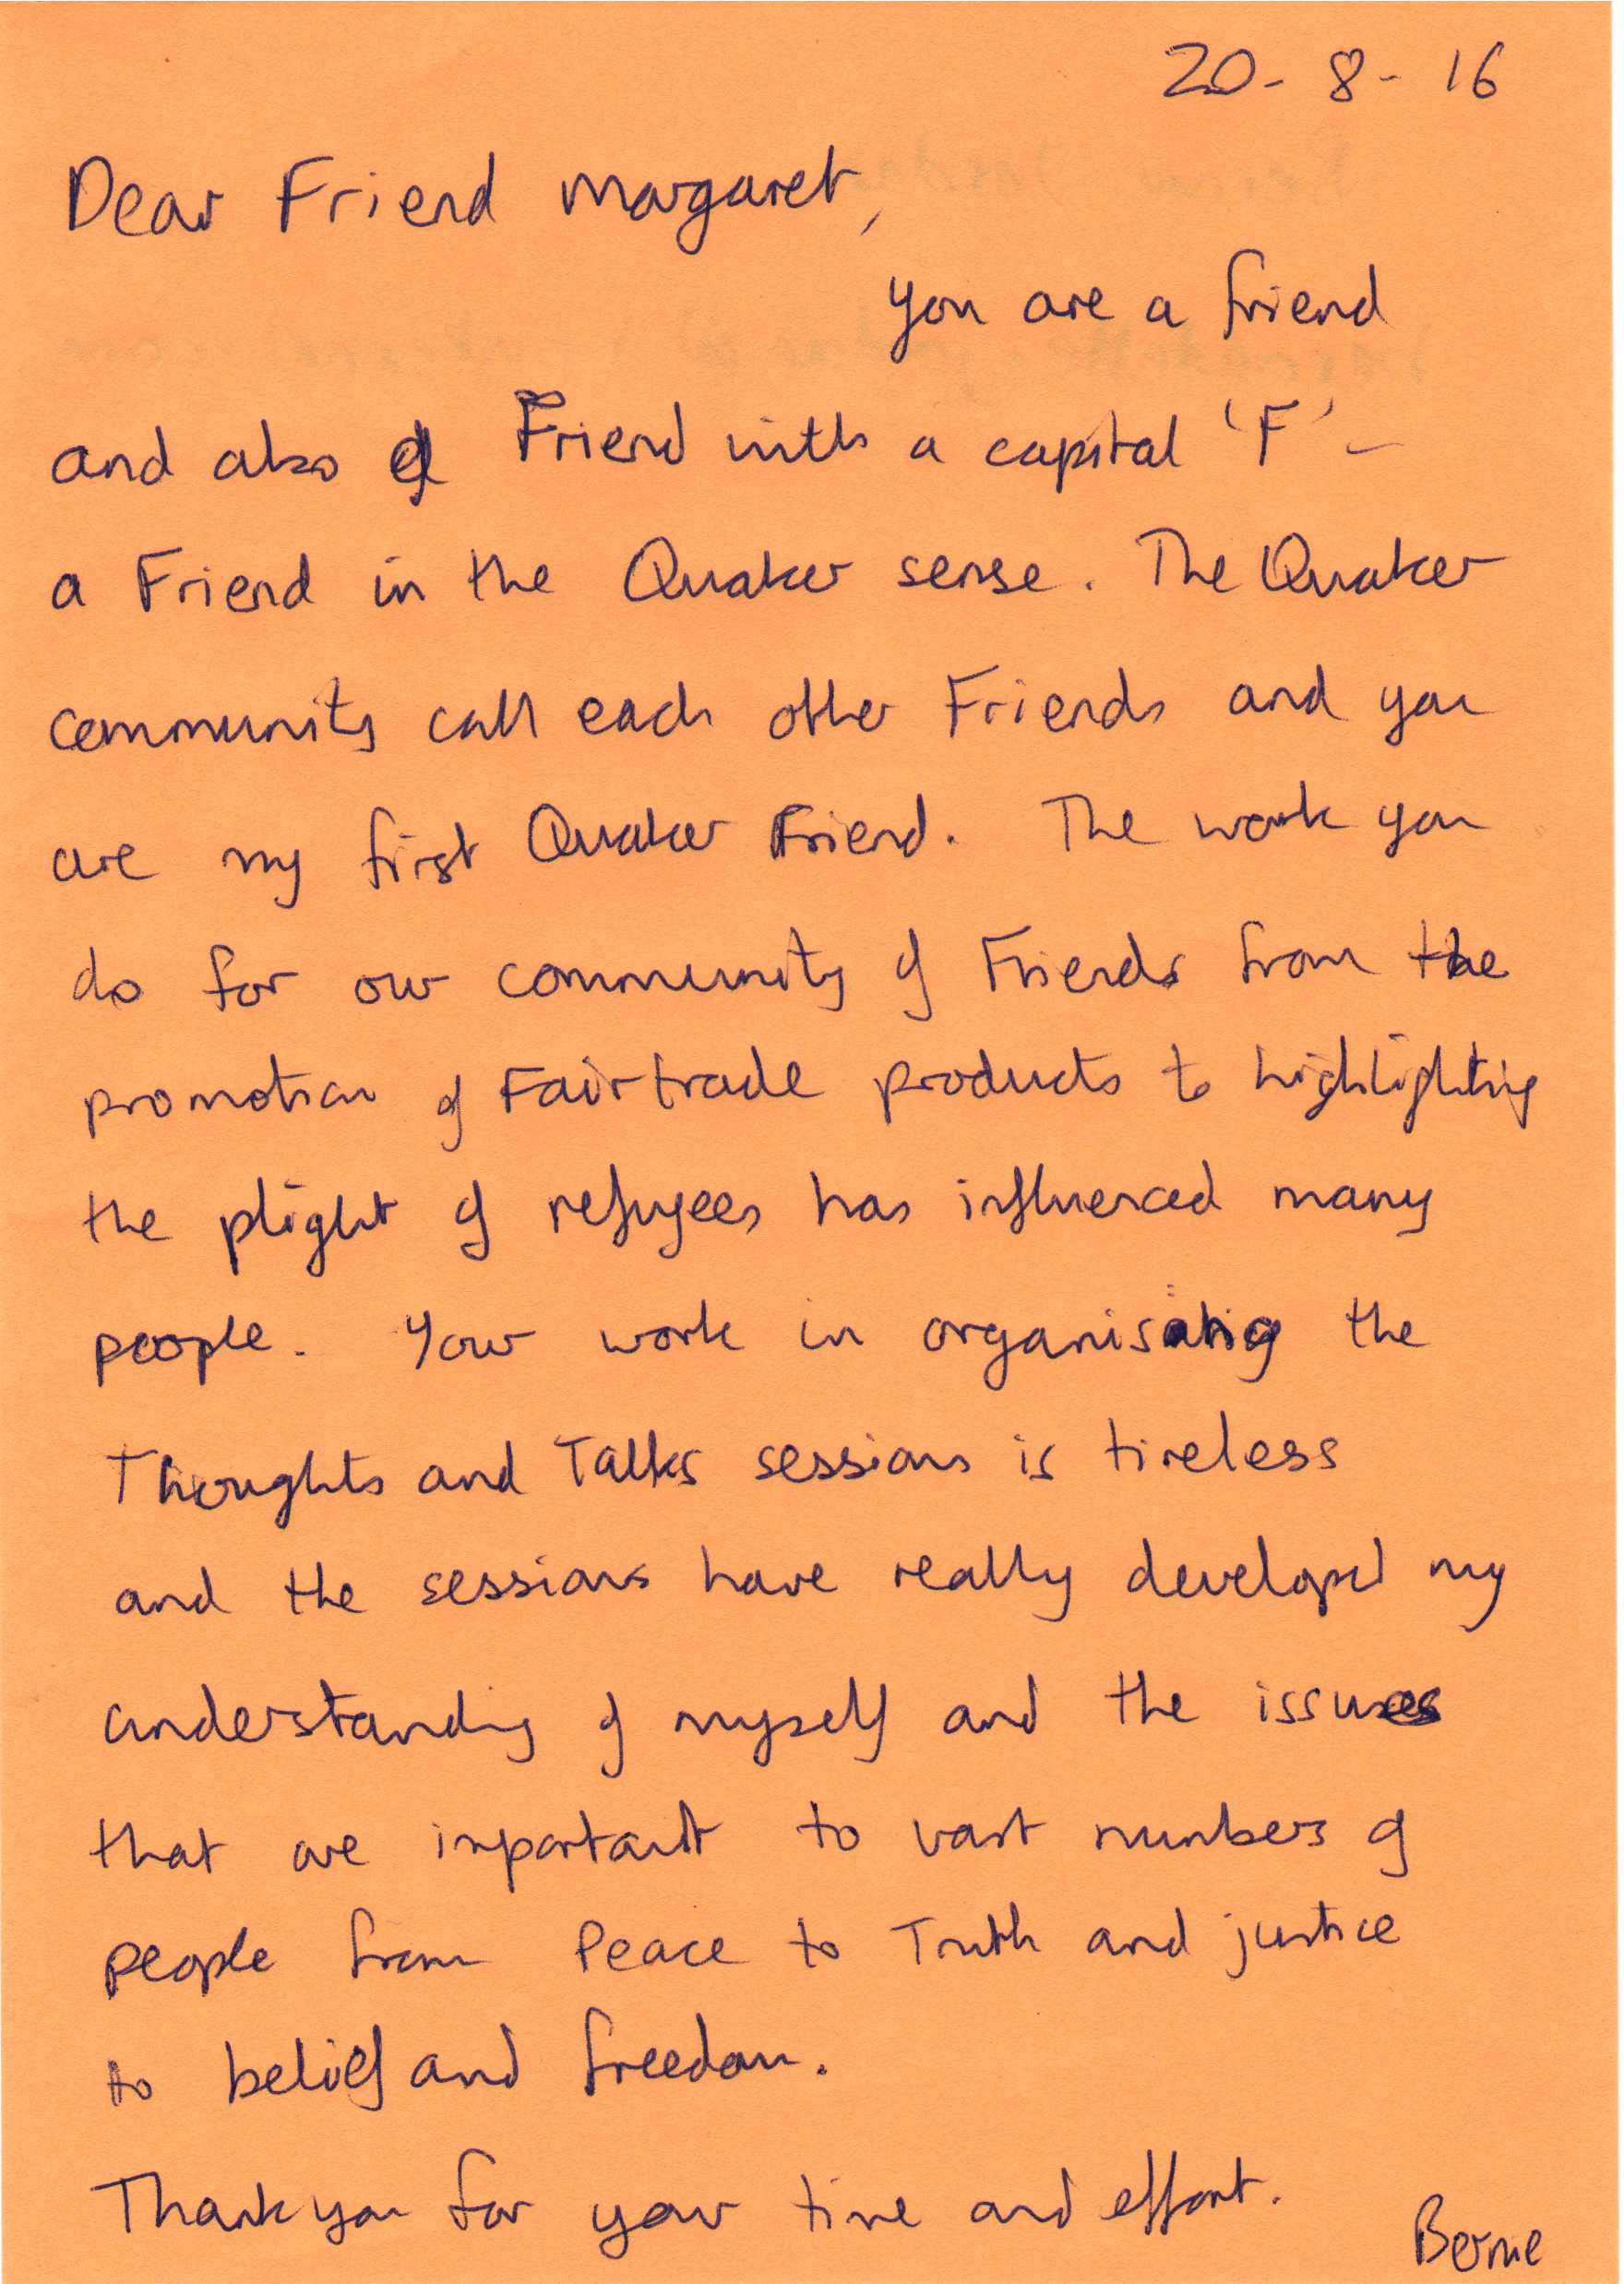 20-8-16
Dear Friend Margaret,
you are a friend
and also a Friend with a capital 'F' -
a Friend in the Quaker sense. The Quaker
community call each other Friends and you
are my first Quaker Friend. The work you
do for our community of Friends from the
promotion of Fairtrade products to highlighting
the plight of refugees has influenced many
people. Your work in organising the
Thoughts and Talks sessions is tireless
and the sessions have really developed my
understanding of myself and the issues
that are important to vast numbers of
people from Peace to Truth and justice
to belief and freedom.
Thank you for your time and effort.
Bernie